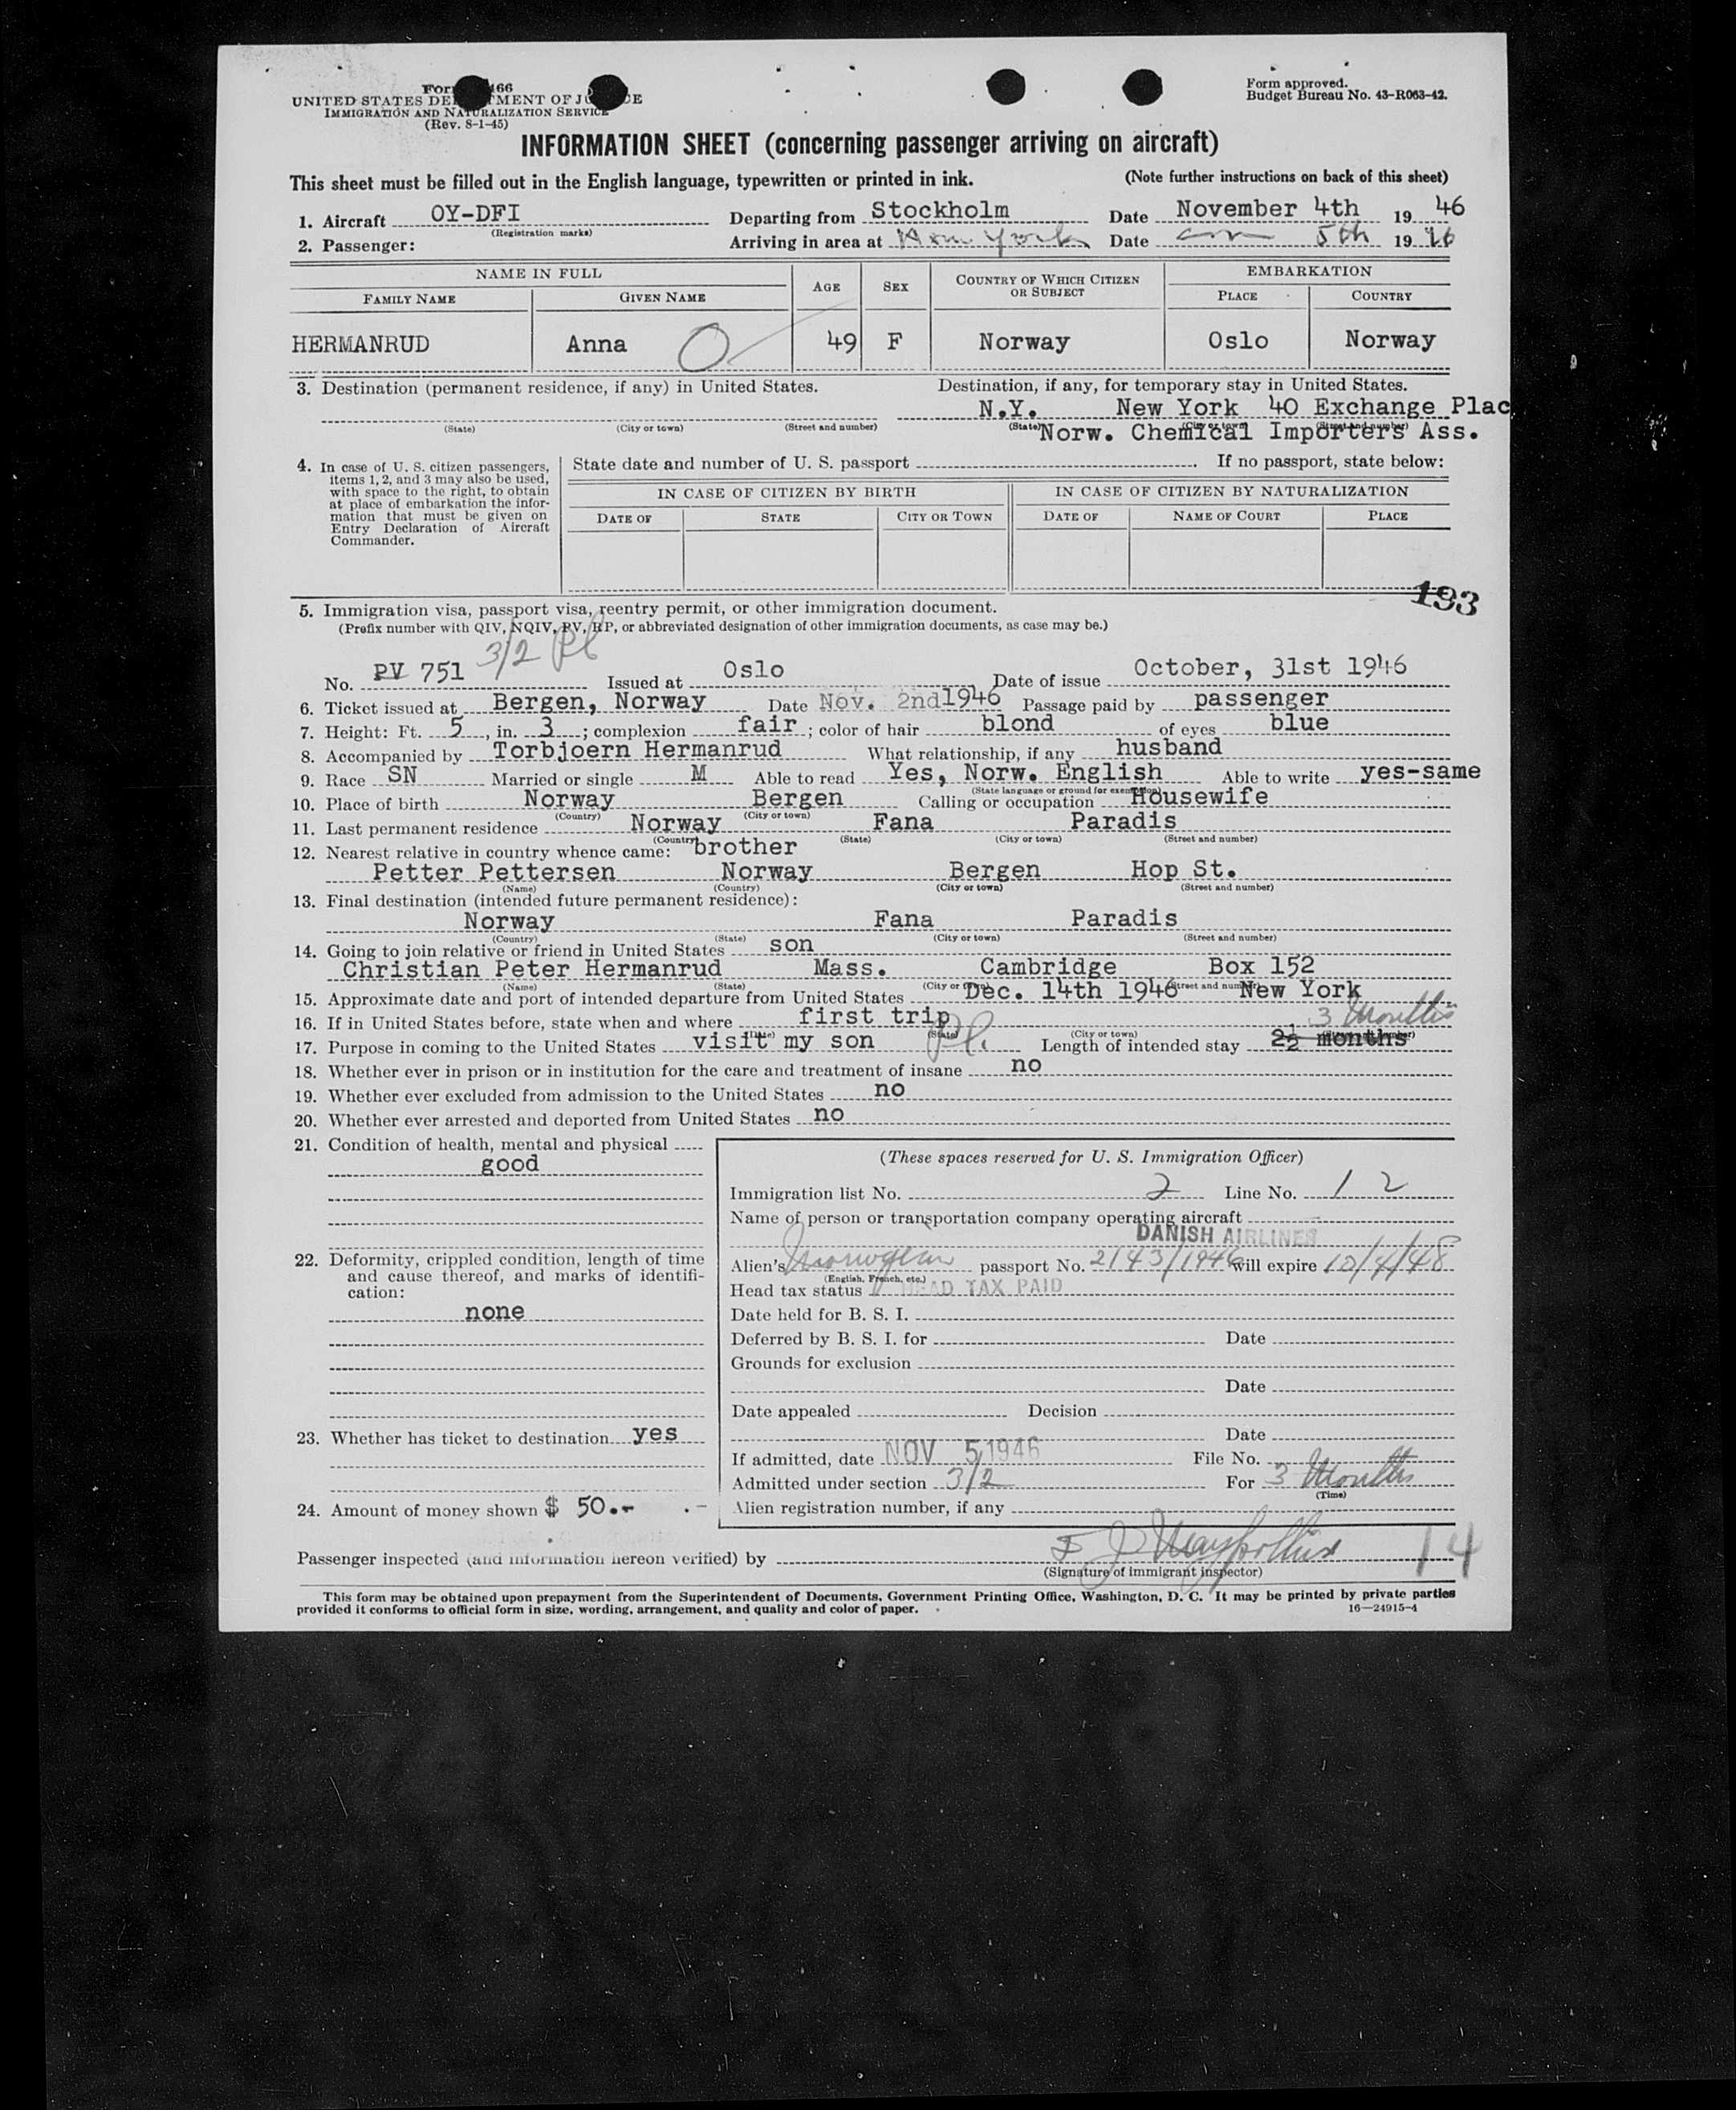 Form 466
UNITED STATES DEPARTMENT OF JUSTICE
IMMIGRATION AND NATURALIZATION SERVICE
(Rev. 8-1-45)
Form approved.
Budget Bureau No. 43-R063-42.
INFORMATION SHEET (concerning passenger arriving on aircraft)
This sheet must be filled out in the English language, typewritten or printed in ink. (Note further instructions on back of this sheet)
1. Aircraft OY-DFI Departing from Stockholm Date November 4th 1946
(Registration marks)
2. Passenger: Arriving in area at New York Date 5th 1946
NAME IN FULL AGE SEX COUNTRY OF WHICH CITIZEN OR SUBJECT EMBARKATION
FAMILY NAME GIVEN NAME PLACE COUNTRY
HERMANRUD Anna 49 F Norway Oslo Norway
3. Destination (permanent residence, if any) in United States. Destination, if any, for temporary stay in United States.
N.Y. New York 40 Exchange Plac
(State) (City or town) (Street and number) (State) (City or town) (Street and number)
Norw. Chemical Importers Ass.
4. In case of U. S. citizen passengers, items 1, 2, and 3 may also be used, with space to the right, to obtain at place of embarkation the information that must be given on Entry Declaration of Aircraft Commander.
State date and number of U. S. passport If no passport, state below:
IN CASE OF CITIZEN BY BIRTH IN CASE OF CITIZEN BY NATURALIZATION
DATE OF STATE CITY OR TOWN DATE OF NAME OF COURT PLACE
193
5. Immigration visa, passport visa, reentry permit, or other immigration document.
(Prefix number with QIV, NQIV, PV, RP, or abbreviated designation of other immigration documents, as case may be.)
3/2 Pl
No. PV 751 Issued at Oslo Date of issue October, 31st 1946
6. Ticket issued at Bergen, Norway Date Nov. 2nd 1946 Passage paid by passenger
7. Height: Ft. 5, in. 3; complexion fair; color of hair blond of eyes blue
8. Accompanied by Torbjoern Hermanrud What relationship, if any husband
9. Race SN Married or single M Able to read Yes, Norw. English Able to write yes-same
(State language or ground for exemption)
10. Place of birth Norway Bergen Calling or occupation Housewife
(Country) (City or town)
11. Last permanent residence Norway Fana Paradis
(Country) (State) (City or town) (Street and number)
12. Nearest relative in country whence came: brother
Petter Pettersen Norway Bergen Hop St.
(Name) (Country) (City or town) (Street and number)
13. Final destination (intended future permanent residence):
Norway Fana Paradis
(Country) (State) (City or town) (Street and number)
14. Going to join relative or friend in United States son
Christian Peter Hermanrud Mass. Cambridge Box 152
(Name) (State) (City or town) (Street and number)
15. Approximate date and port of intended departure from United States Dec. 14th 1946 New York
16. If in United States before, state when and where first trip 3 Months
(Date) (State) (City or town) (Street and number)
17. Purpose in coming to the United States visit my son Pl. Length of intended stay 2½ months
18. Whether ever in prison or in institution for the care and treatment of insane no
19. Whether ever excluded from admission to the United States no
20. Whether ever arrested and deported from United States no
21. Condition of health, mental and physical
good
22. Deformity, crippled condition, length of time and cause thereof, and marks of identification:
none
23. Whether has ticket to destination yes
24. Amount of money shown $ 50.-
(These spaces reserved for U. S. Immigration Officer)
Immigration list No. 2 Line No. 12
Name of person or transportation company operating aircraft
DANISH AIRLINES
Alien's Norwegian passport No. 2143/1946 will expire 10/4/48
(English, French, etc.)
Head tax status HEAD TAX PAID
Date held for B. S. I.
Deferred by B. S. I. for Date
Grounds for exclusion
Date
Date appealed Decision
Date
If admitted, date NOV 5 1946 File No.
Admitted under section 3/2 For 3 Months
(Time)
Alien registration number, if any
Passenger inspected (and information hereon verified) by
14
(Signature of immigrant inspector)
This form may be obtained upon prepayment from the Superintendent of Documents, Government Printing Office, Washington, D. C. It may be printed by private parties
provided it conforms to official form in size, wording, arrangement, and quality and color of paper. 16—24915-4